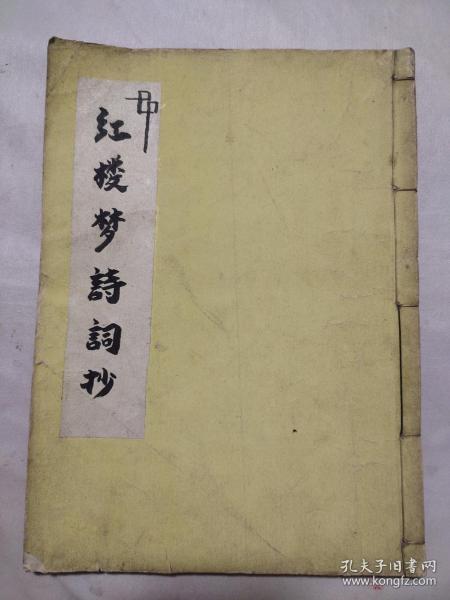 红楼梦詩詞抄
孔夫子旧书网
www.kongfz.com